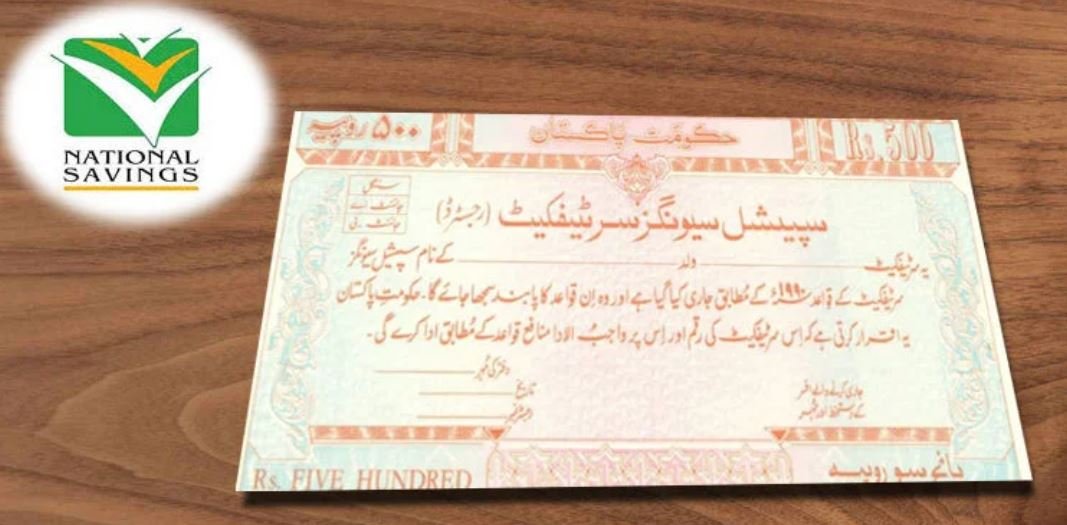 NATIONAL
SAVINGS
۵۰۰ روپیہ
حکومت پاکستان
Rs. 500
سپیشل سیونگز سرٹیفکیٹ (رجسٹرڈ)
یہ سرٹیفکیٹ ولد کے نام سپیشل سیونگز
سرٹیفکیٹ کے قواعد ۱۹۹۰ء کے مطابق جاری کیا گیا ہے اور وہ ان قواعد کا پابند سمجھا جائے گا۔ حکومت پاکستان
یہ اقرار کرتی ہے کہ اس سرٹیفکیٹ کی رقم اور اس پر واجب الادا منافع قواعد کے مطابق ادا کرے گی۔
دفتر کی مہر
تاریخ
جاری کرنے والے افسر
کے دستخط اور مہر
Rs. FIVE HUNDRED
پانچ سو روپیہ